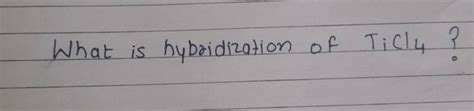 What is hybridization of TiCl4 ?